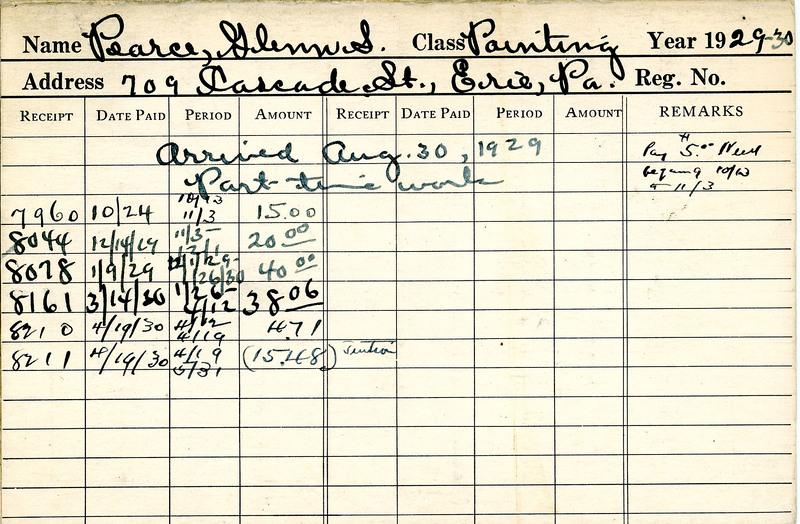 Name Pearce, Glenn S. Class Painting Year 1929-30
Address 709 Cascade St., Erie, Pa. Reg. No.
RECEIPT DATE PAID PERIOD AMOUNT RECEIPT DATE PAID PERIOD AMOUNT REMARKS
Arrived Aug. 30, 1929
Pay $5.00 Week
Part-time work
11/3
7960 10/24 11/3 15.00
8044 12/14/19 11/3- 20 00
8078 1/9/29 1/26/30 40 00
8161 3/14/30 1/26- 4/12 38 06
8210 4/19/30 4/12 4/19 4.71
8211 4/19/30 4/19 5/31 (15.48) Tuition